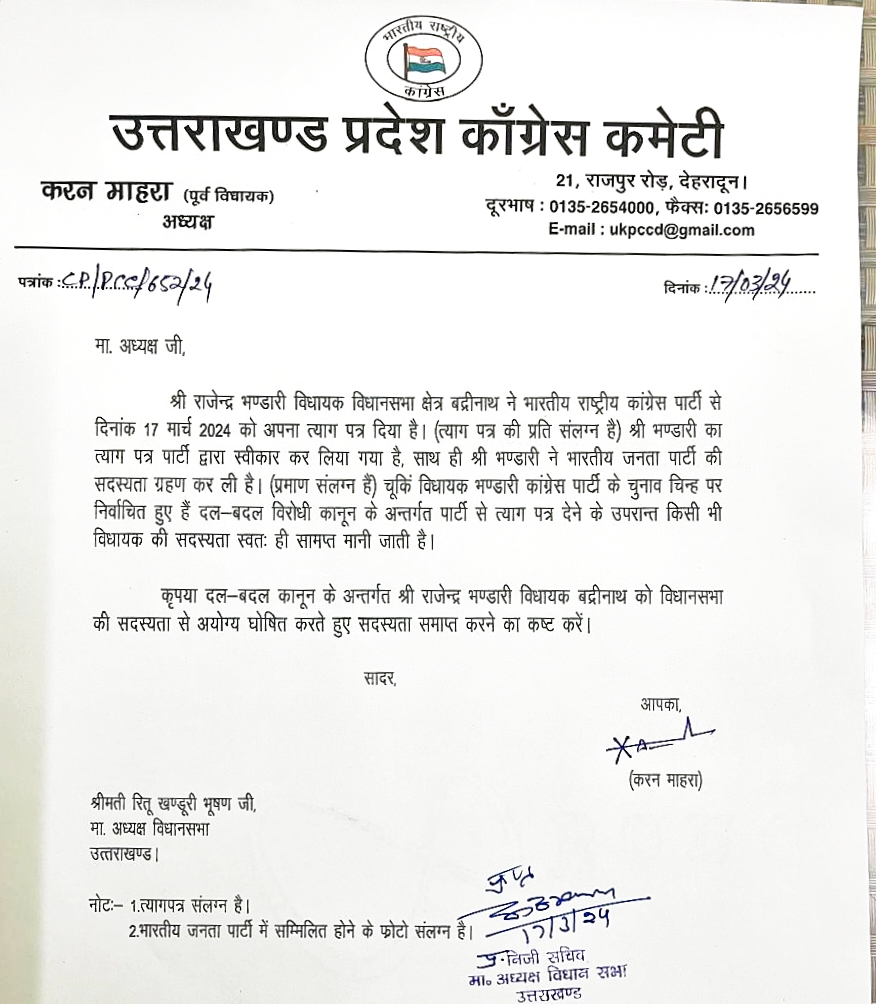 भारतीय राष्ट्रीय
कांग्रेस
उत्तराखण्ड प्रदेश काँग्रेस कमेटी
करन माहरा (पूर्व विधायक)
अध्यक्ष
21, राजपुर रोड़, देहरादून।
दूरभाष : 0135-2654000, फैक्सः 0135-2656599
E-mail : ukpccd@gmail.com
पत्रांक :C.P./P.C.C/652/24
दिनांक :17/03/24
मा. अध्यक्ष जी,
श्री राजेन्द्र भण्डारी विधायक विधानसभा क्षेत्र बद्रीनाथ ने भारतीय राष्ट्रीय कांग्रेस पार्टी से
दिनांक 17 मार्च 2024 को अपना त्याग पत्र दिया है। (त्याग पत्र की प्रति संलग्न है) श्री भण्डारी का
त्याग पत्र पार्टी द्वारा स्वीकार कर लिया गया है, साथ ही श्री भण्डारी ने भारतीय जनता पार्टी की
सदस्यता ग्रहण कर ली है। (प्रमाण संलग्न हैं) चूकिं विधायक भण्डारी कांग्रेस पार्टी के चुनाव चिन्ह पर
निर्वाचित हुए हैं दल–बदल विरोधी कानून के अन्तर्गत पार्टी से त्याग पत्र देने के उपरान्त किसी भी
विधायक की सदस्यता स्वतः ही सामप्त मानी जाती है।
कृपया दल–बदल कानून के अन्तर्गत श्री राजेन्द्र भण्डारी विधायक बद्रीनाथ को विधानसभा
की सदस्यता से अयोग्य घोषित करते हुए सदस्यता समाप्त करने का कष्ट करें।
सादर,
आपका,
(करन माहरा)
श्रीमती रितू खण्डूरी भूषण जी,
मा. अध्यक्ष विधानसभा
उत्तराखण्ड।
नोटः– 1.त्यागपत्र संलग्न है।
2.भारतीय जनता पार्टी में सम्मिलित होने के फोटो संलग्न है।
17/3/24
प्र.निजी सचिव
मा० अध्यक्ष विधान सभा
उत्तराखण्ड